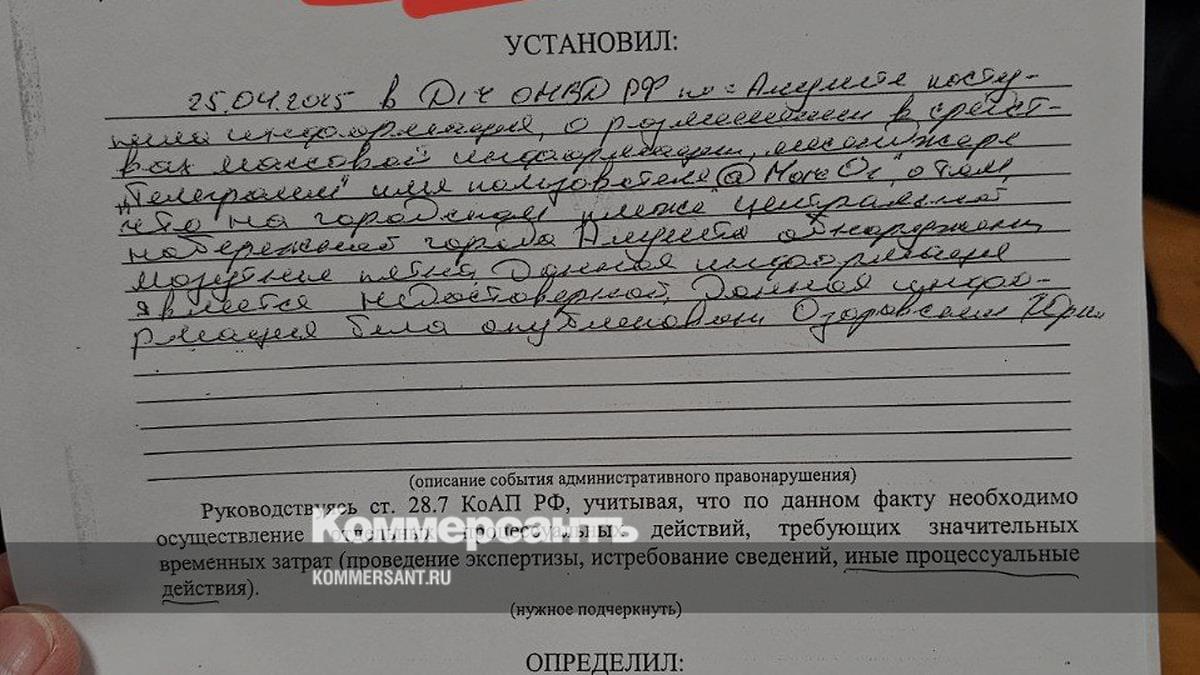 УСТАНОВИЛ:
25.04.2025 в Д/Ч ОМВД РФ по г. Алуште посту-
пила информация, о размещении в средст-
вах массовой информации, мессенджере
„Телеграмм" имя пользователя @ о том,
что на городском пляже центральной
набережной города Алушта обнаружены
мазутные пятна, Данная информация
является недостоверной, Данная инфо-
рмация была опубликована Озаровским
(описание события административного правонарушения)
Руководствуясь ст. 28.7 КоАП РФ, учитывая, что по данному факту необходимо
осуществление отдельных процессуальных действий, требующих значительных
временных затрат (проведение экспертизы, истребование сведений, иные процессуальные
действия).
(нужное подчеркнуть)
ОПРЕДЕЛИЛ:
Коммерсантъ
KOMMERSANT.RU